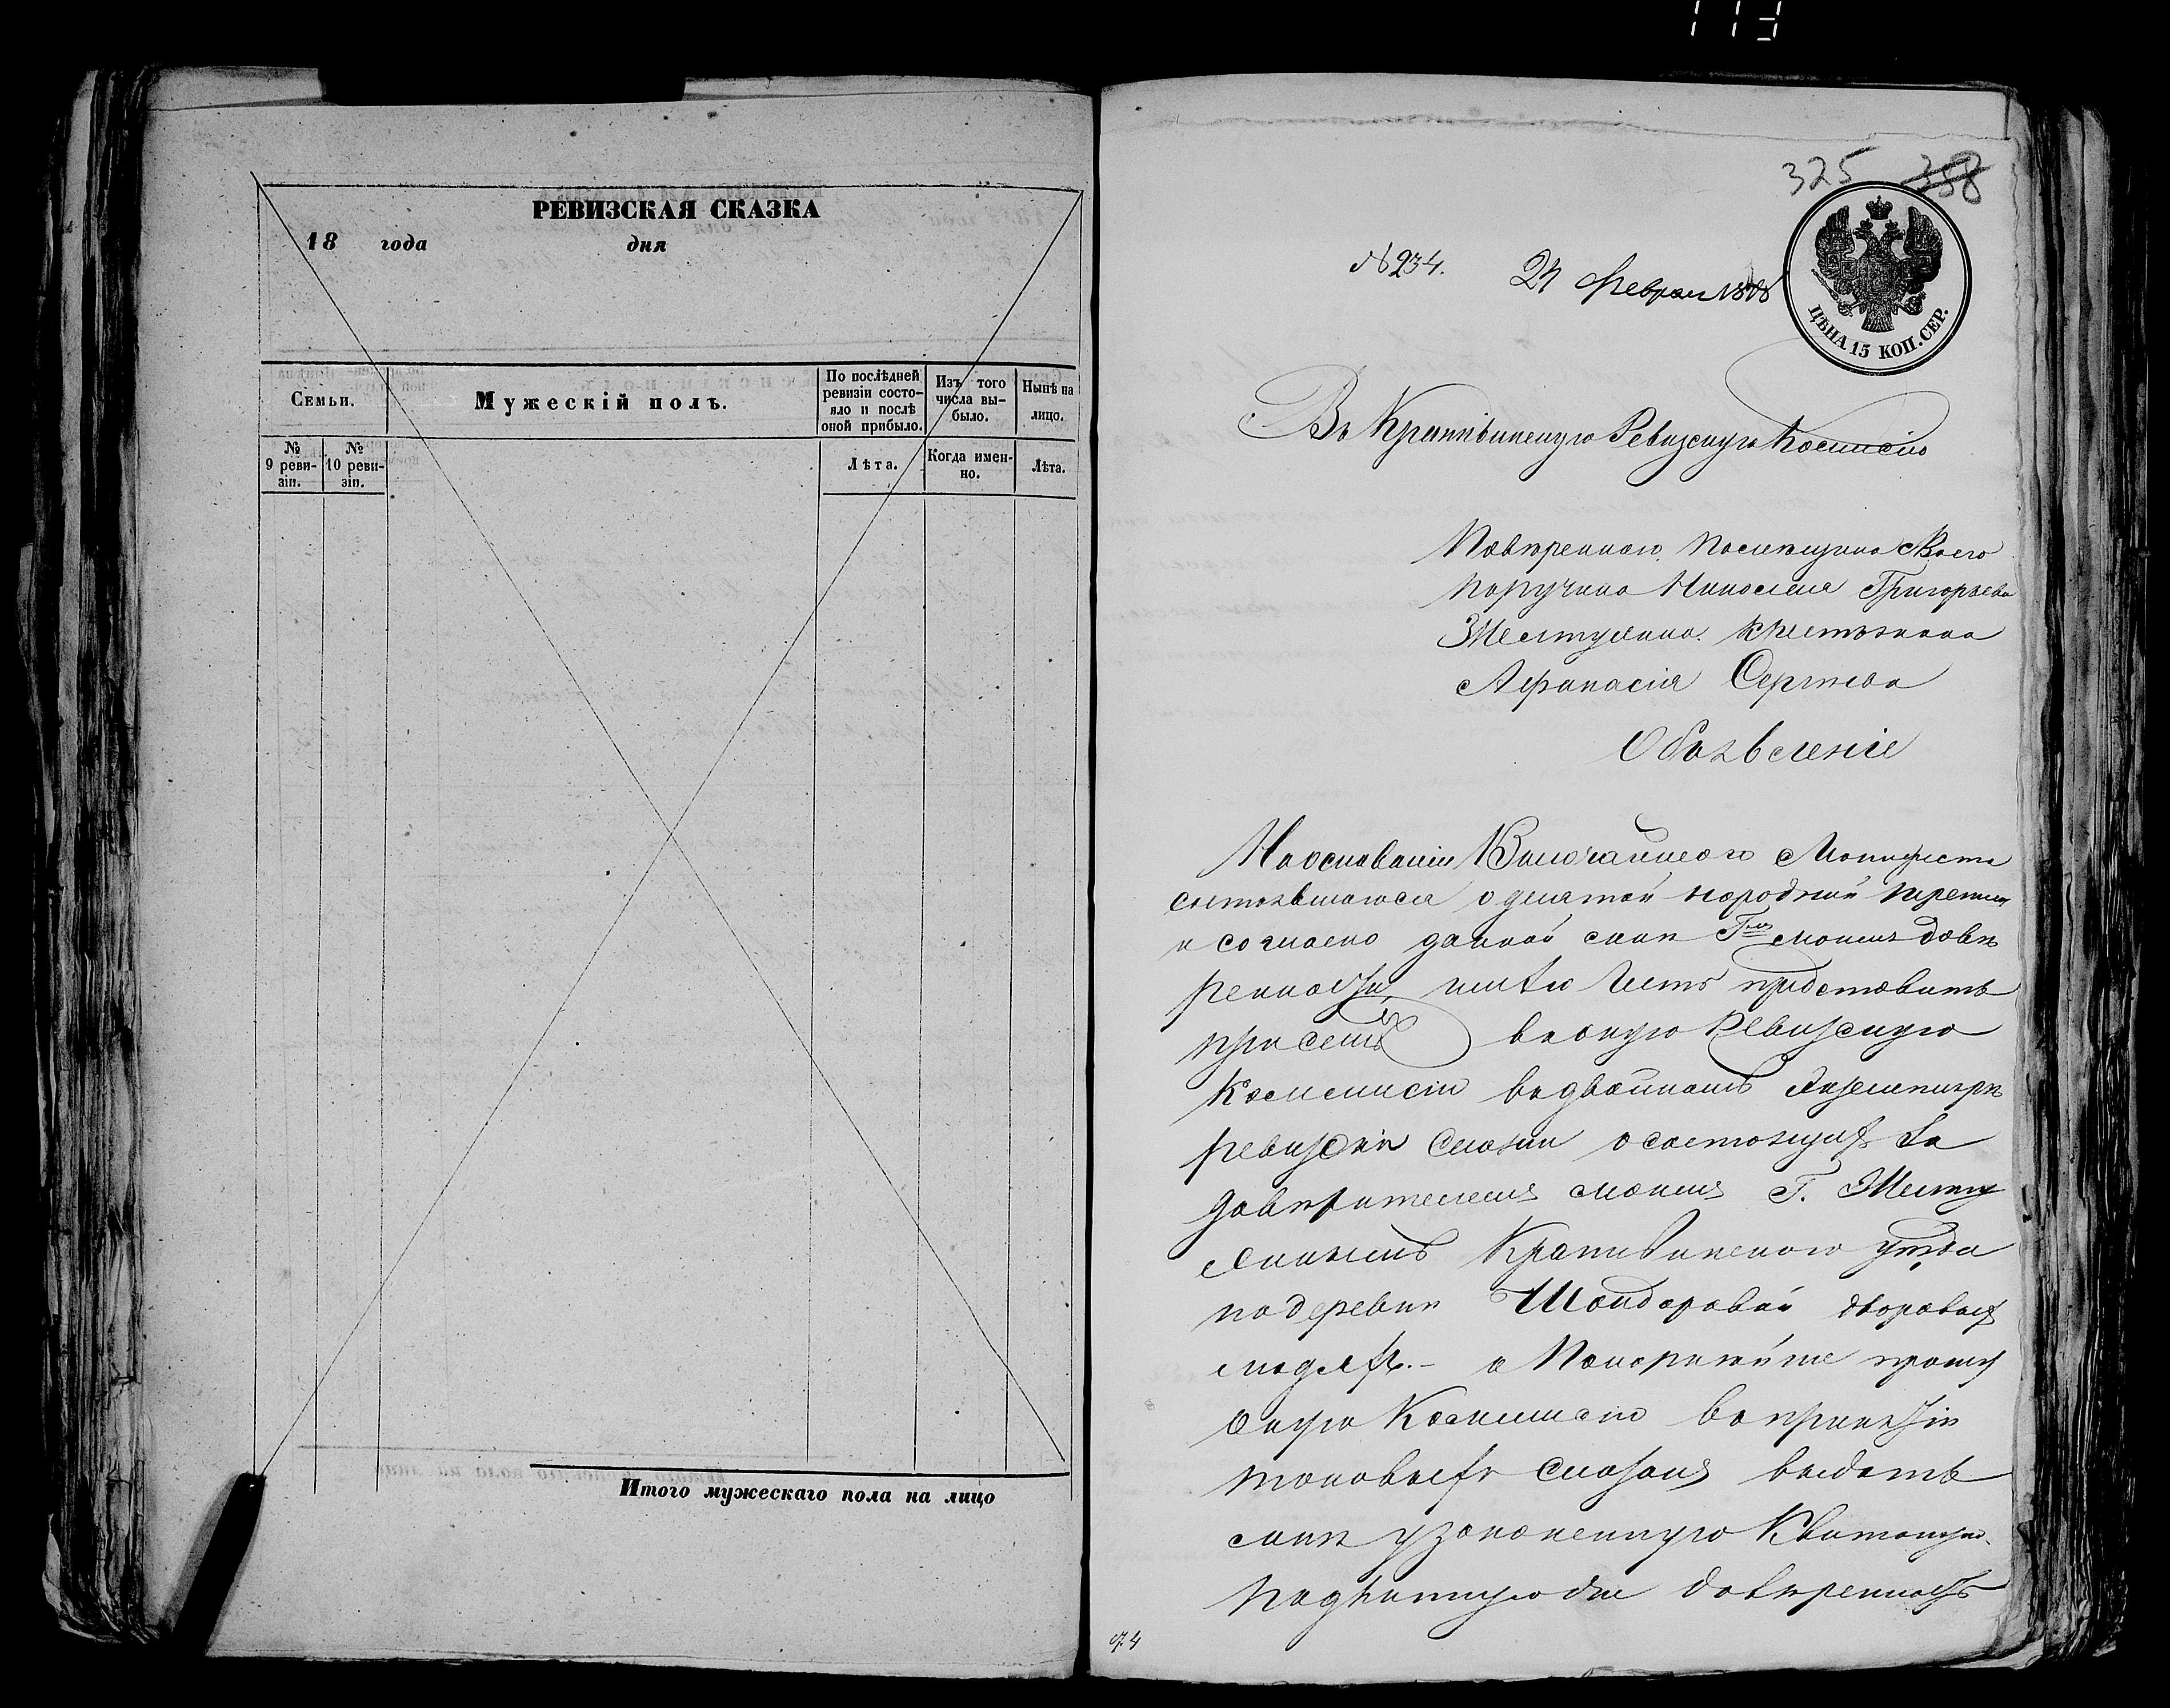 113
РЕВИЗСКАЯ СКАЗКА
18 года дня
Семьи.
Мужескій полъ.
По послѣдней ревизіи состо-
яло и послѣ оной прибыло.
Изъ того числа вы-
было.
Нынѣ на лицо.
№ 9 реви-
зіи.
№ 10 реви-
зіи.
Лѣта.
Когда имен-
но.
Лѣта.
Итого мужескаго пола на лицо
325 358
ЦѢНА 15 КОП. СЕР.
№ 234.
Февраля
Въ Крапивинскую Ревизскую Комисію
Повѣреннаго помѣщика своего
поручика Николая Григорьева
крестьянина
Афанасія Сергѣева
Объявленіе
На основаніи Высочайшаго Манифеста
состоявшагося о десятой народной
и согласно данной мнѣ Г-мъ моимъ довѣ
ренности, имѣю честь представить
при семъ въ оную Ревизскую
Коммисію въ двойномъ экземплярѣ
ревизскія сказки о состоящихъ за
довѣрителемъ моимъ Г.
Крапивинскаго уѣзда
по деревни дворовыхъ
людяхъ. – а Покорнѣйше прошу
оную Коммисію въ принятіи
таковыхъ сказокъ выдать
мнѣ узаконенную Квитанцію.
Подлинную же довѣренность